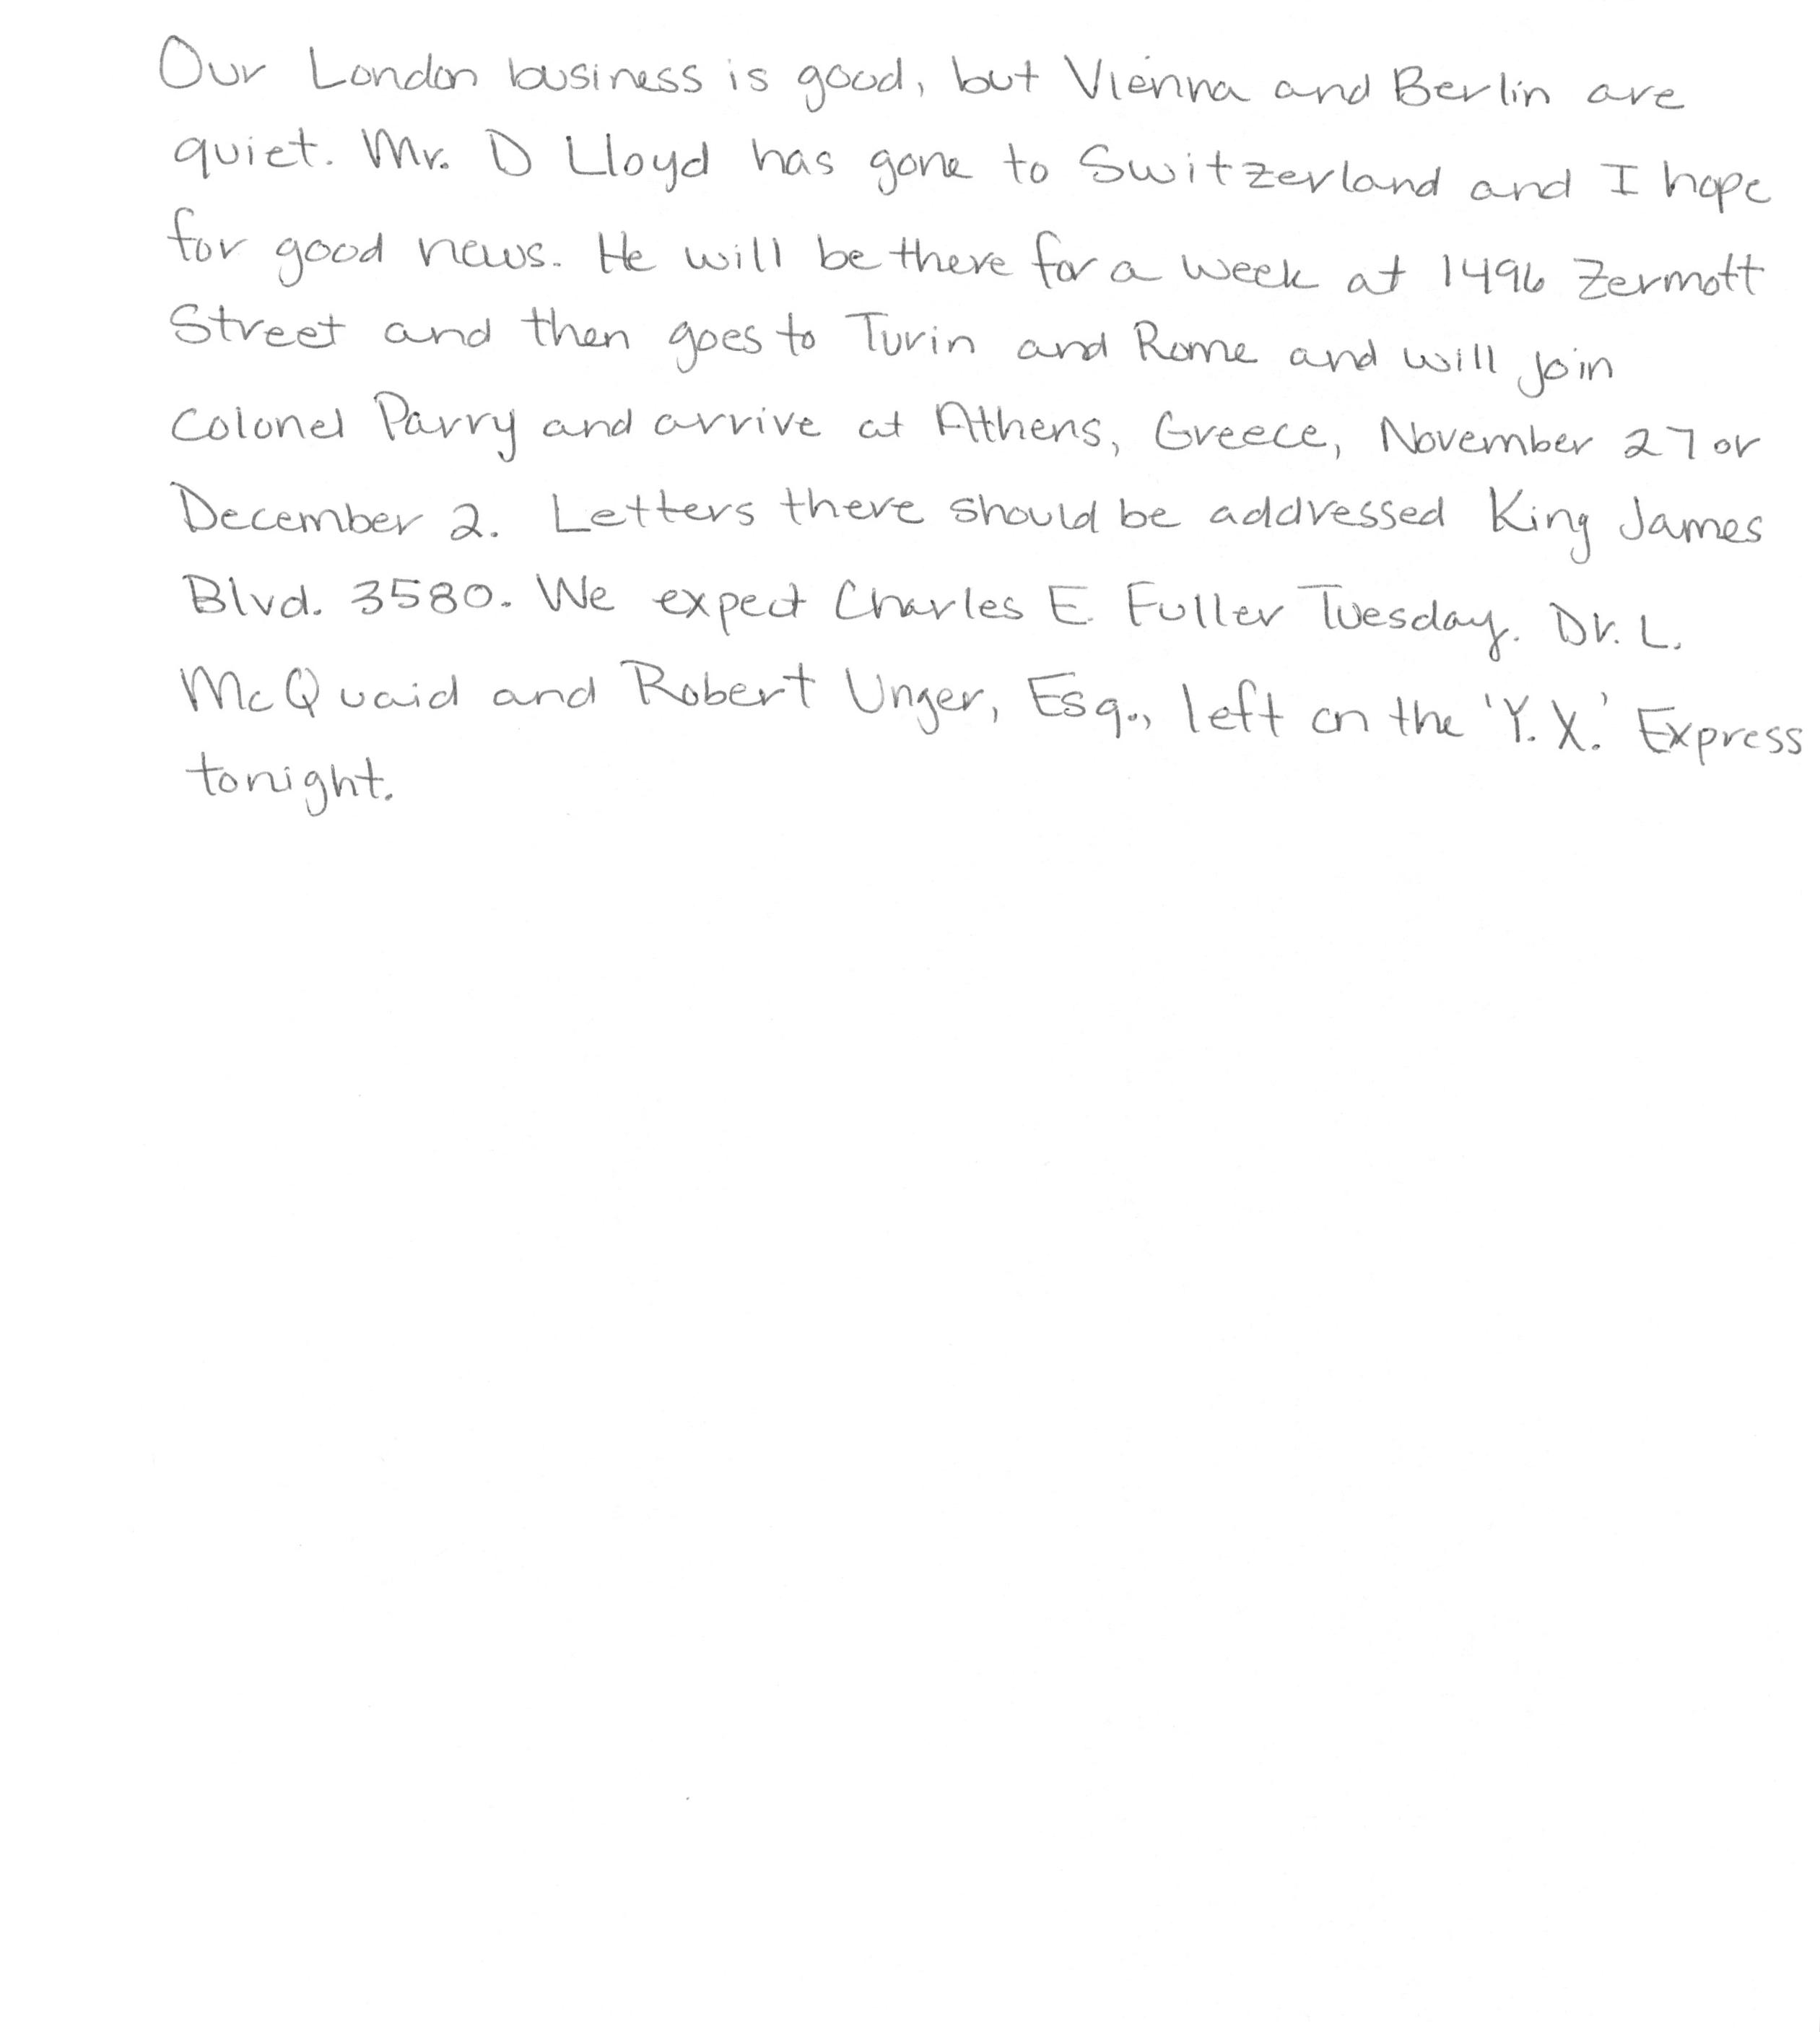 Our London business is good, but Vienna and Berlin are
quiet. Mr. D Lloyd has gone to Switzerland and I hope
for good news. He will be there for a week at 1496 Zermott
Street and then goes to Turin and Rome and will join
Colonel Parry and arrive at Athens, Greece, November 27 or
December 2. Letters there should be addressed King James
Blvd. 3580. We expect Charles E. Fuller Tuesday. Dr. L.
McQuaid and Robert Unger, Esq., left on the 'Y.X.' Express
tonight.